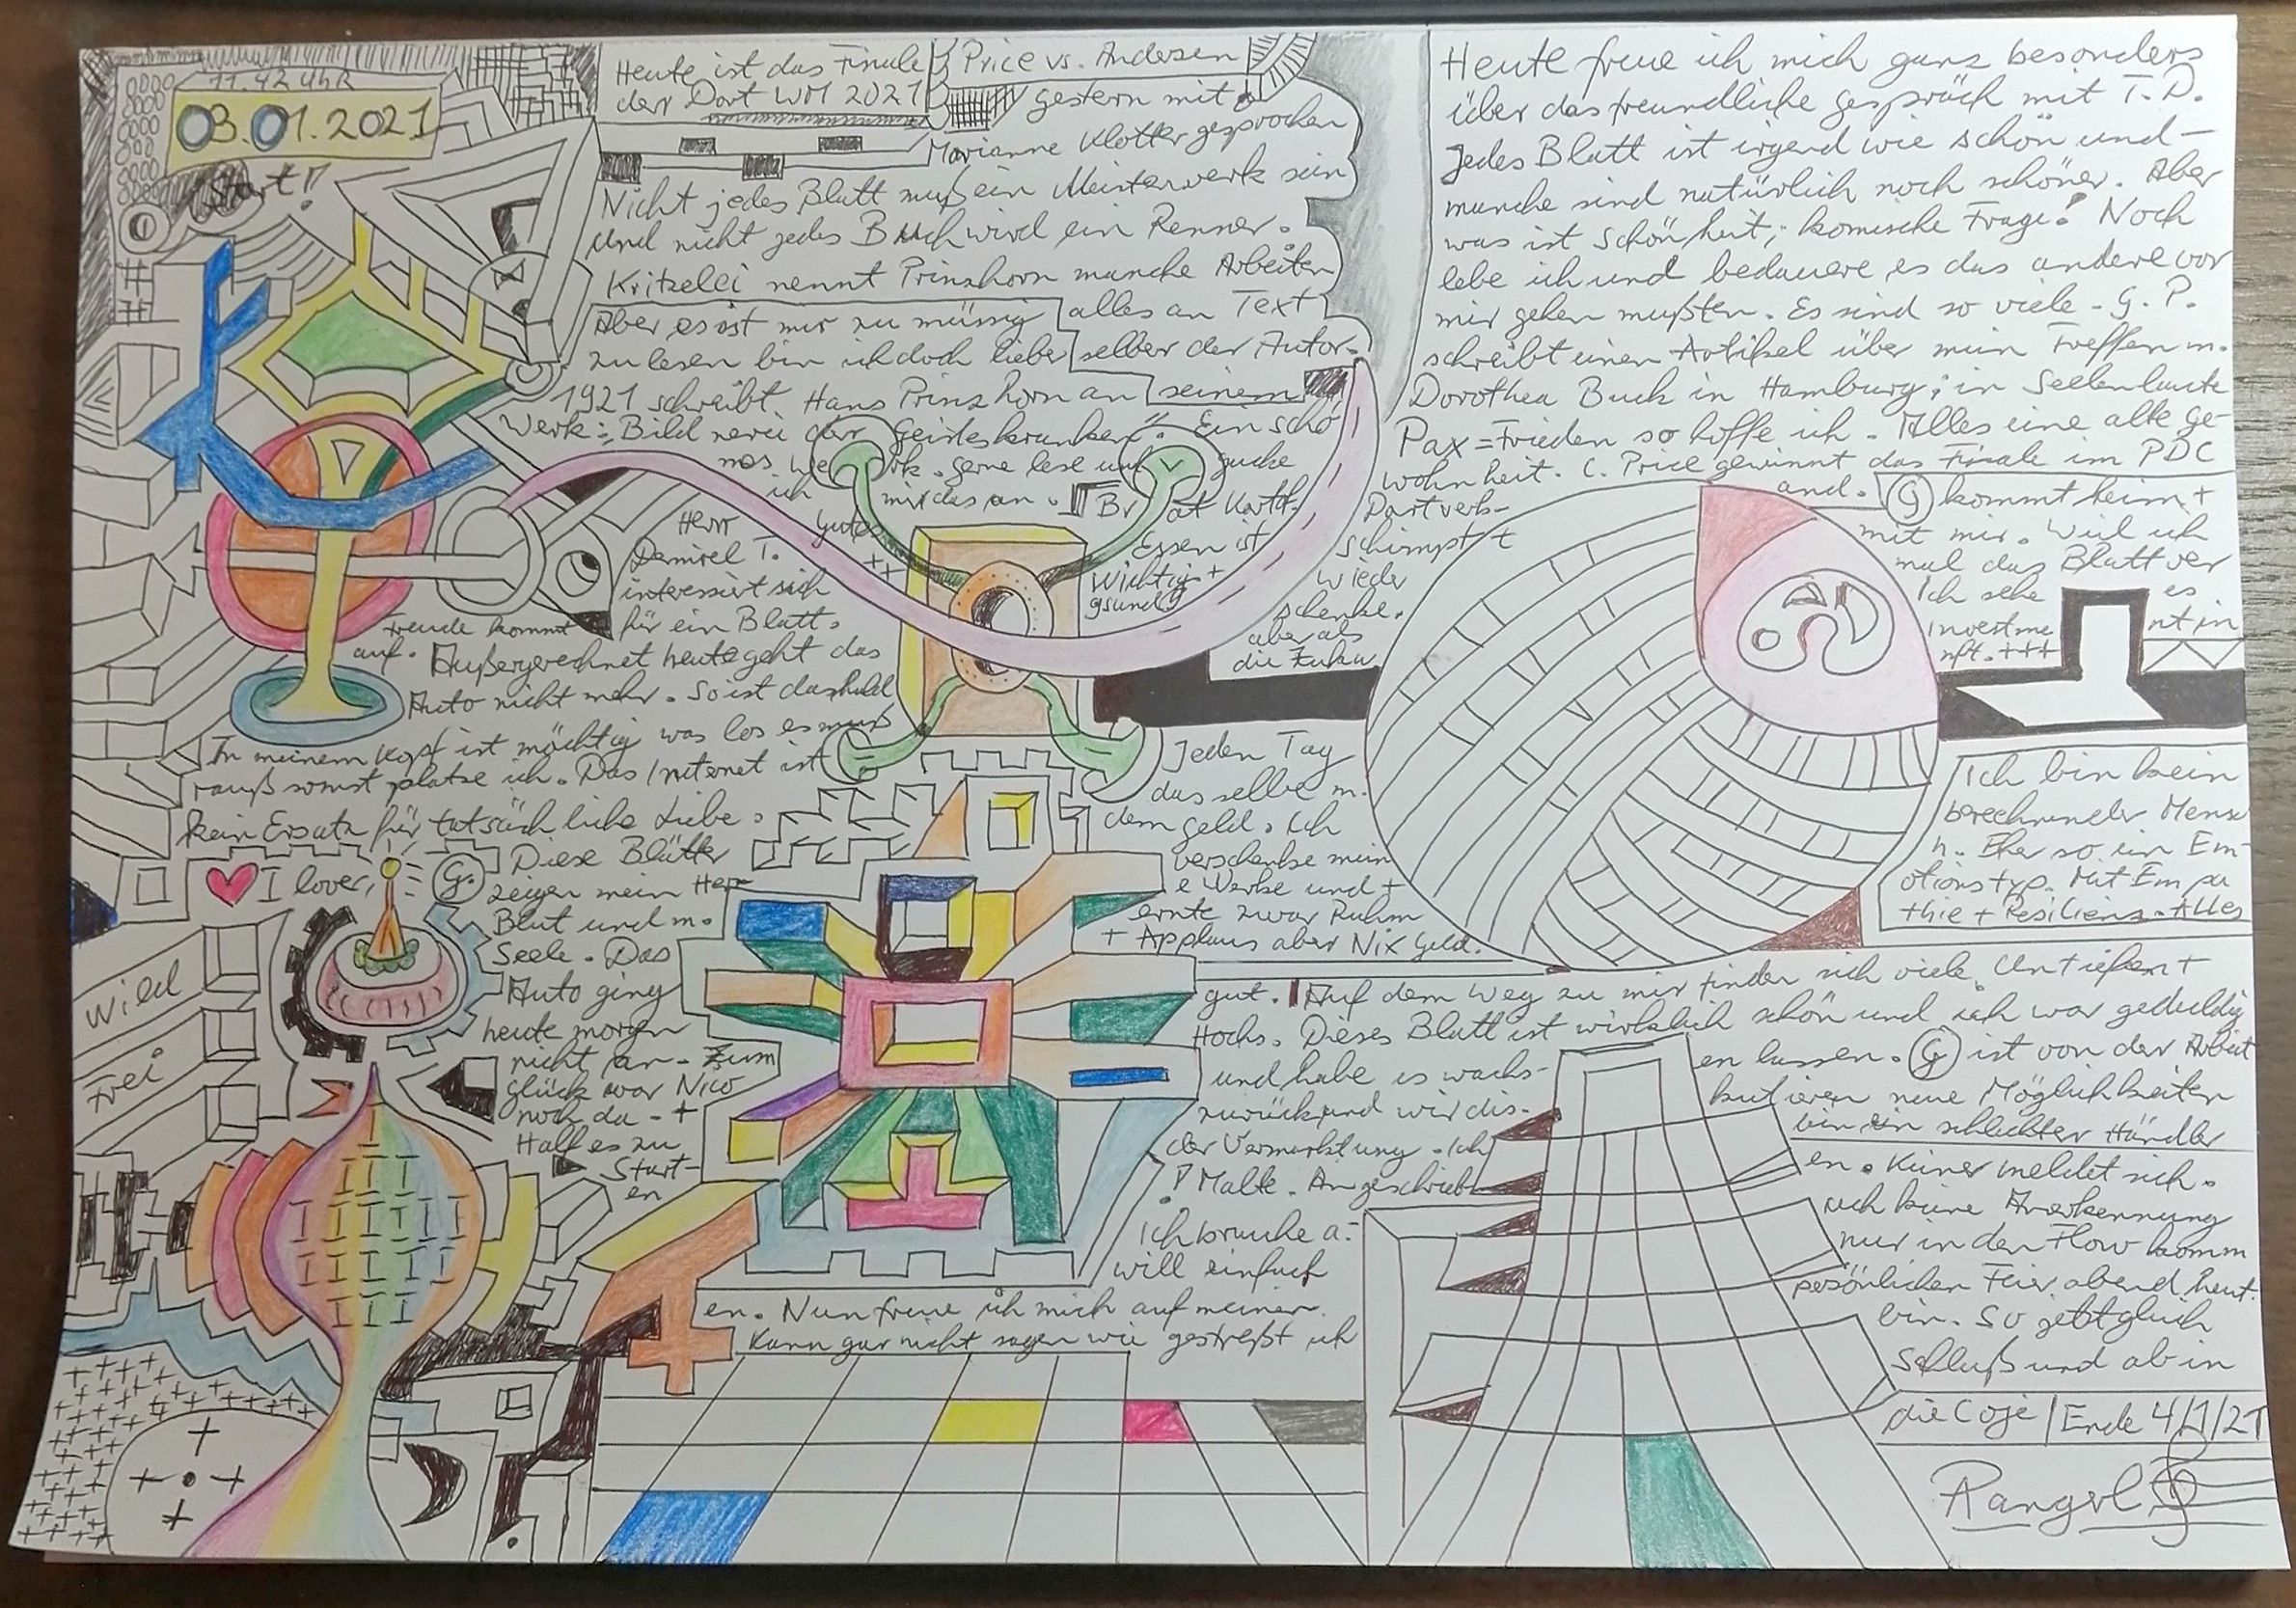 11.42 Uhr
03.01.2021
Start!!
Heute ist das Finale
der Dart WM 2021
Price vs. Andersen
gestern mit
Marianne Klotter gesprochen
Nicht jedes Blatt muß ein Meisterwerk sein
und nicht jedes Buch wird ein Renner.
Kritzelei nennt Prinzhorn manche Arbeiten
Aber es ist mir zu müssig alles an Text
zu lesen bin ich doch lieber selber der Autor.
1921 schreibt Hans Prinzhorn an seinem
Werk: Bildnerei der Geisteskranken". Ein schö
nes We rk. gerne lese und gucke
ich mir das an. Br at Kartf.
Herr gutes Essen ist
Demirel T. ++ Wichtig +
interessiert sich gsund
für ein Blatt.
Freude kommt
auf. Außergerechnet heute geht das
Auto nicht mehr. So ist das halt
In meinem Kopf ist mächtig was los es muß
rauß somst platze ich. Das Internet ist
kein Ersatz für tatsächliche Liebe.
I lover,
G.
Diese Blätter
zeigen mein Herz
Blut und m.
Seele. Das
Auto ging
heute morgen
nicht an. Zum
glück war Nico
noch da - +
Half es zu
Start-
en
Wild
Frei
Jeden Tag
das selbe m.
dem geld. Ich
verschenke mein
e Werke und +
ernte zwar Ruhm
+ Applaus aber Nix Geld.
Heute freue ich mich ganz besonders
über das freundliche gespräch mit T. D.
Jedes Blatt ist irgend wie schön und -
manche sind natürlich noch schöner. Aber
was ist schönheit; komische Frage? Noch
lebe ich und bedauere es das andere vor
mir gehen mußten. Es sind so viele - G. P.
schreibt einen Artikel über mein Treffen m.
Dorothea Buck in Hamburg; in Seelenlaute
Pax = Frieden so hoffe ich. Alles eine alte ge-
wohnheit. C. Price gewinnt das Finale im PDC
Dartverb- and. G kommt heim +
schimpft mit mir. Weil ich
wieder mal das Blatt ver
schenke. Ich sehe es
aber als Investme nt in
die Zuku nft. +++
Ich bin kein
berechnender Mensc
h. Eher so ein Em-
otionstyp. Mit Em pa
thie + Resilienz. Alles
gut. Auf dem Weg zu mir finden sich viele Untiefen +
Hochs. Dieses Blatt ist wirklich schön und ich war geduldig
und habe es wachs- en lassen. G ist von der Arbeit
zurück und wir dis- kutieren neue Möglichkeiten
der Vermarktung. Ich bin ein schlechter Händler
! Malte. Angeschrieb en. Keiner meldet sich.
Ich brauche a- uch keine Anerkennung
will einfach nur in den Flow komm
en. Nun freue ich mich auf meinen persönlichen Feierabend heut.
Kann gar nicht sagen wie gestreßt ich bin. So jetzt gleich
Schluß und ab in
die Coje / Ende 4/1/21
Rangel